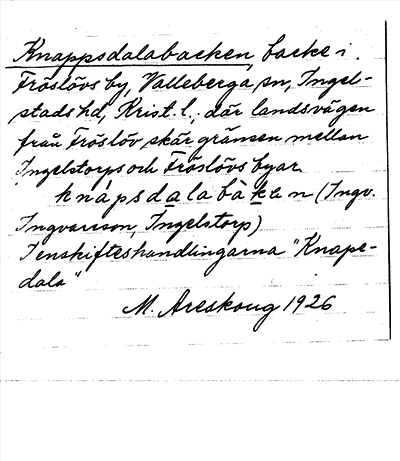 Knappsdalabacken, backe i
Fröslövs by, Valleberga sn, Ingel-
stads hd, Krist. l., där landsvägen
från Fröslöv skär gränsen mellan
Ingelstorps och Fröslövs byar.
knápsdalabàkan (Ingv.
Ingvarsson, Ingelstorp)
I enskifteshandlingarna "Knape-
dala"
M. Areskoug 1926